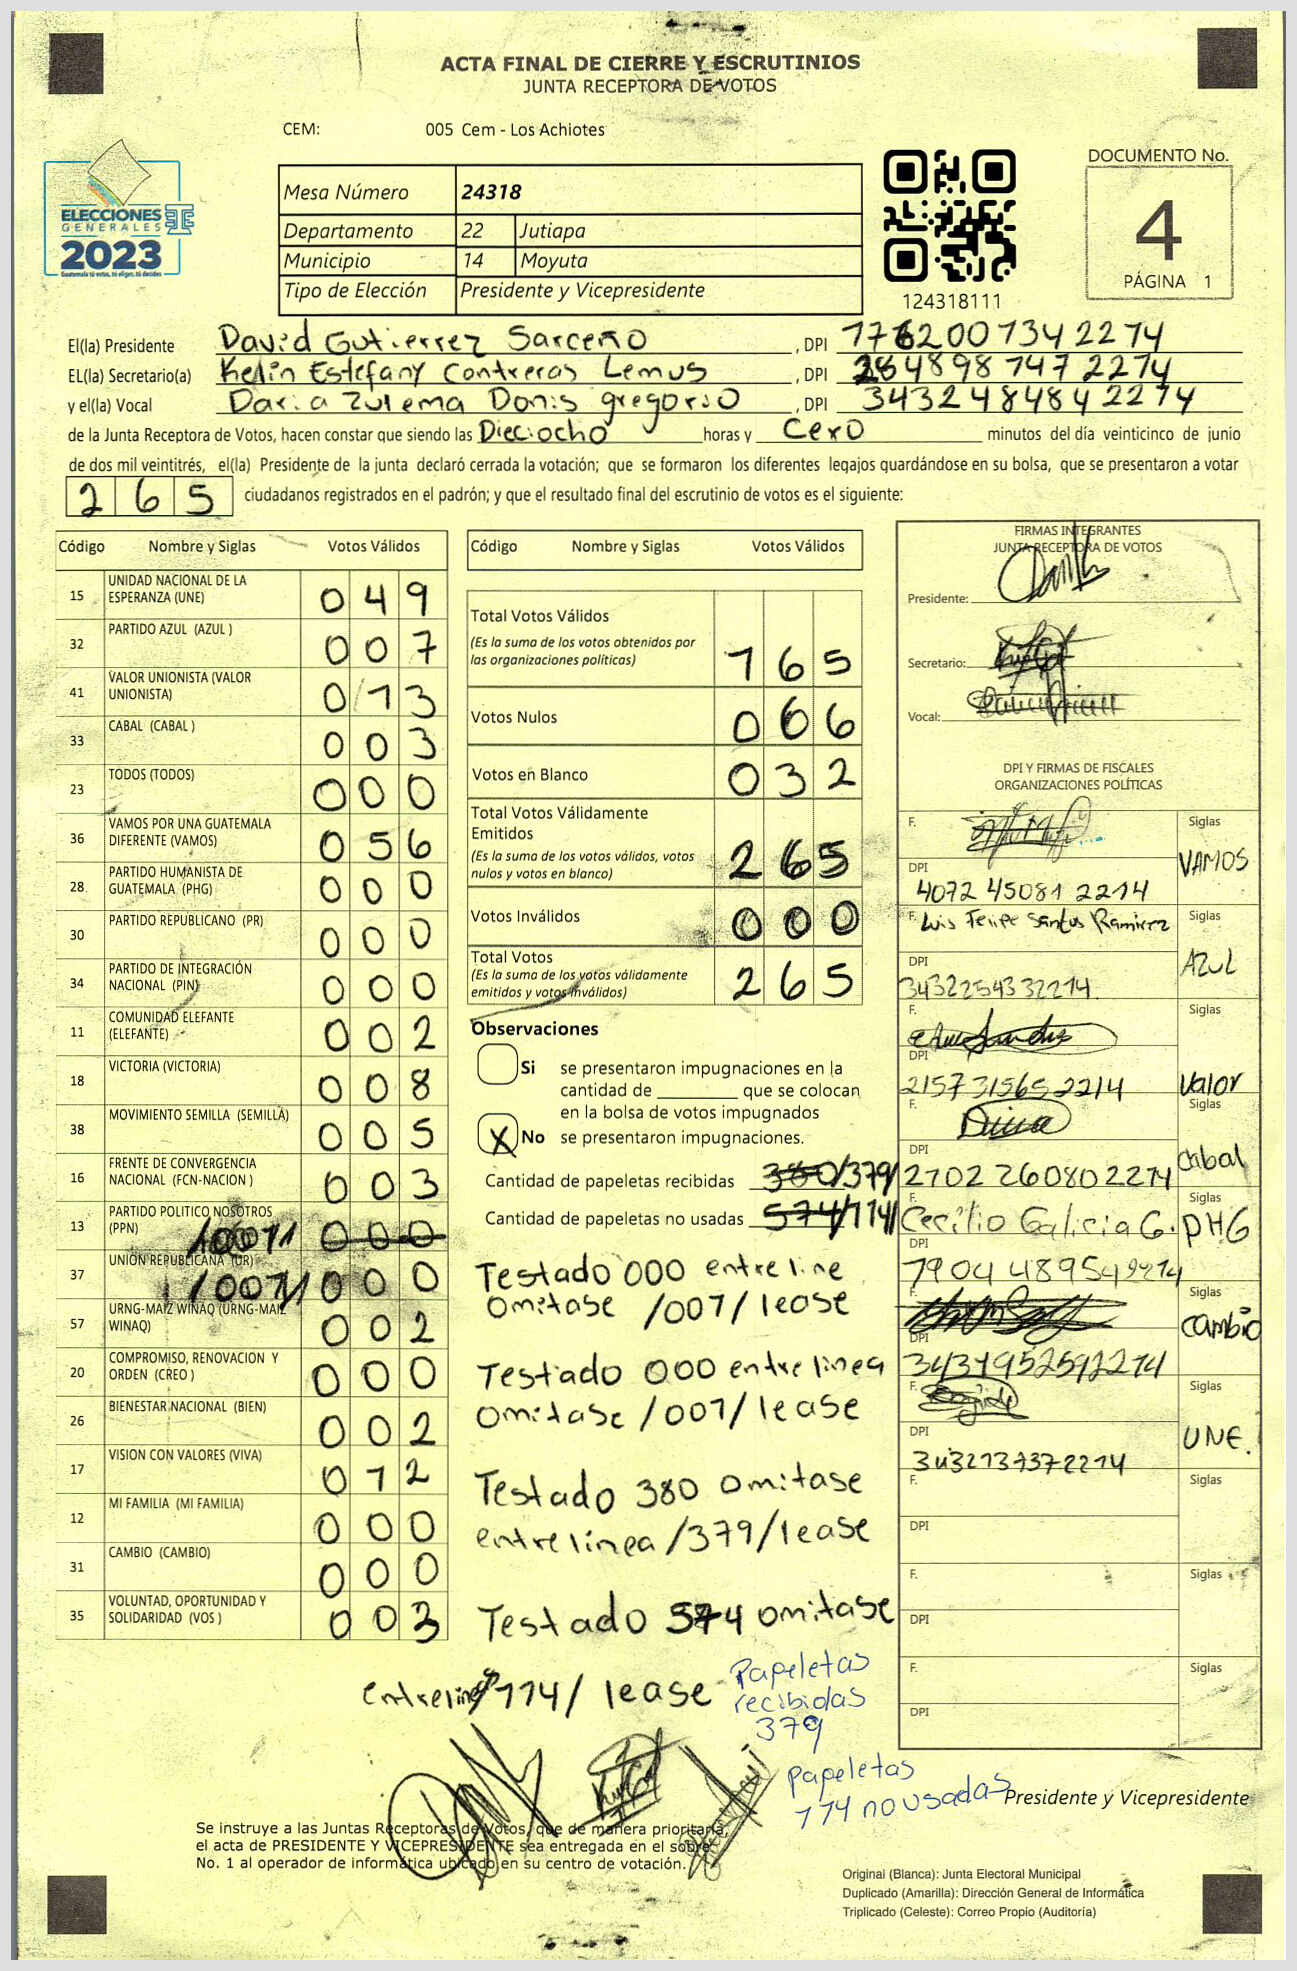 ACTA FINAL DE CIERRE Y ESCRUTINIOS
JUNTA RECEPTORA DE VOTOS
CEM: 005 Cem - Los Achiotes
ELECCIONES
GENERALES
2023
Guatemala tú votas, tú eliges, tú decides
Mesa Número 24318
Departamento 22 Jutiapa
Municipio 14 Moyuta
Tipo de Elección Presidente y Vicepresidente
124318111
DOCUMENTO No.
4
PÁGINA 1
El(la) Presidente David Gutierrez Sarceño, DPI 1762007342214
EL(la) Secretario(a) Kelin Estefany Contreras Lemus, DPI 2848987472214
y el(la) Vocal Daria Zulema Donis gregorio, DPI 3432484842214
de la Junta Receptora de Votos, hacen constar que siendo las Dieciocho horas y Cero minutos del día veinticinco de junio
de dos mil veintitrés, el(la) Presidente de la junta declaró cerrada la votación; que se formaron los diferentes legajos guardándose en su bolsa, que se presentaron a votar
265 ciudadanos registrados en el padrón; y que el resultado final del escrutinio de votos es el siguiente:
Código Nombre y Siglas Votos Válidos
15 UNIDAD NACIONAL DE LA ESPERANZA (UNE) 049
32 PARTIDO AZUL (AZUL ) 007
41 VALOR UNIONISTA (VALOR UNIONISTA) 013
33 CABAL (CABAL ) 003
23 TODOS (TODOS) 000
36 VAMOS POR UNA GUATEMALA DIFERENTE (VAMOS) 056
28 PARTIDO HUMANISTA DE GUATEMALA (PHG) 000
30 PARTIDO REPUBLICANO (PR) 000
34 PARTIDO DE INTEGRACIÓN NACIONAL (PIN) 000
11 COMUNIDAD ELEFANTE (ELEFANTE) 002
18 VICTORIA (VICTORIA) 008
38 MOVIMIENTO SEMILLA (SEMILLA) 005
16 FRENTE DE CONVERGENCIA NACIONAL (FCN-NACION ) 003
13 PARTIDO POLITICO NOSOTROS (PPN) /001/ 000
37 UNION REPUBLICANA (UR) /001/ 000
57 URNG-MAIZ WINAQ (URNG-MAIZ WINAQ) 002
20 COMPROMISO, RENOVACION Y ORDEN (CREO ) 000
26 BIENESTAR NACIONAL (BIEN) 002
17 VISION CON VALORES (VIVA) 012
12 MI FAMILIA (MI FAMILIA) 000
31 CAMBIO (CAMBIO) 000
35 VOLUNTAD, OPORTUNIDAD Y SOLIDARIDAD (VOS ) 003
Código Nombre y Siglas Votos Válidos
Total Votos Válidos
(Es la suma de los votos obtenidos por las organizaciones políticas) 165
Votos Nulos 066
Votos en Blanco 032
Total Votos Válidamente Emitidos
(Es la suma de los votos válidos, votos nulos y votos en blanco) 265
Votos Inválidos 000
Total Votos
(Es la suma de los votos válidamente emitidos y votos inválidos) 265
Observaciones
Si se presentaron impugnaciones en la
cantidad de ________ que se colocan
en la bolsa de votos impugnados
X No se presentaron impugnaciones.
Cantidad de papeletas recibidas 380/379/
Cantidad de papeletas no usadas 574/114/
Testado 000 entre line
omitase /001/ lease
Testado 000 entre linea
omitase /001/ lease
Testado 380 omitase
entre linea /379/ lease
Testado 574 omitase
entrelinea/114/ lease
Papeletas
recibidas
379
Papeletas
114 no usadas
FIRMAS INTEGRANTES
JUNTA RECEPTORA DE VOTOS
Presidente:
Secretario:
Vocal:
DPI Y FIRMAS DE FISCALES
ORGANIZACIONES POLÍTICAS
F. Siglas VAMOS
DPI 4072 45081 2214
F. Luis Felipe Santos Ramirez Siglas AZUL
DPI 3432254332214
F. Siglas Valor
DPI 2157315652214
F. Siglas Cabal
DPI 2702 260802214
F. Cecilio Galicia G. Siglas PHG
DPI 1904489542214
F. Siglas Cambio
DPI 3431952592214
F. Siglas UNE.
DPI 3432137372214
F. Siglas
DPI
F. Siglas
DPI
F. Siglas
DPI
Presidente y Vicepresidente
Se instruye a las Juntas Receptoras de Votos, que de manera prioritaria,
el acta de PRESIDENTE Y VICEPRESIDENTE sea entregada en el sobre
No. 1 al operador de informática ubicado en su centro de votación.
Original (Blanca): Junta Electoral Municipal
Duplicado (Amarilla): Dirección General de Informática
Triplicado (Celeste): Correo Propio (Auditoría)